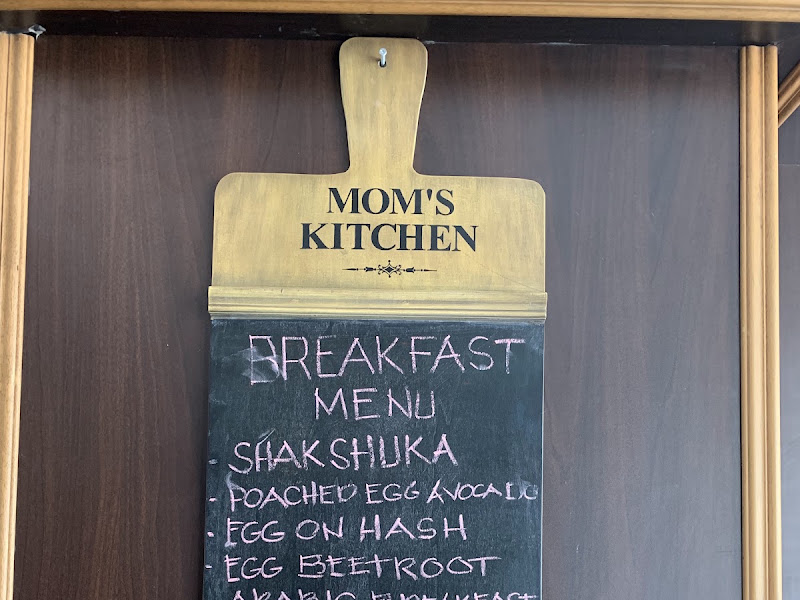 MOM'S
KITCHEN
BREAKFAST
MENU
SHAKSHUKA
- POACHED EGG AVOCADO
- EGG ON HASH
- EGG BEETROOT
ARABIC BREAKFAST